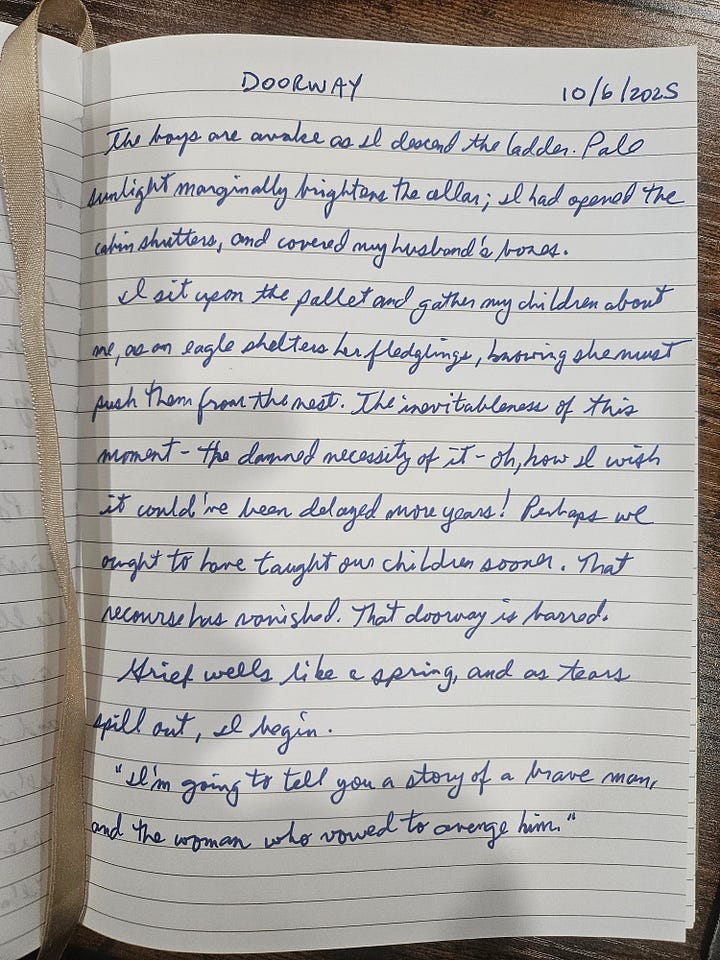 DOORWAY 10/6/2025
The boys are awake as I descend the ladder. Pale
sunlight marginally brightens the cellar; I had opened the
cabin shutters, and covered my husband's boxes.
I sit upon the pallet and gather my children about
me, as an eagle shelters her fledglings, knowing she must
push them from the nest. The inevitableness of this
moment - the damned necessity of it - oh, how I wish
it could've been delayed more years! Perhaps we
ought to have taught our children sooner. That
recourse has vanished. That doorway is barred.
Grief wells like a spring, and as tears
spill out, I begin.
"I'm going to tell you a story of a brave man,
and the woman who vowed to avenge him."